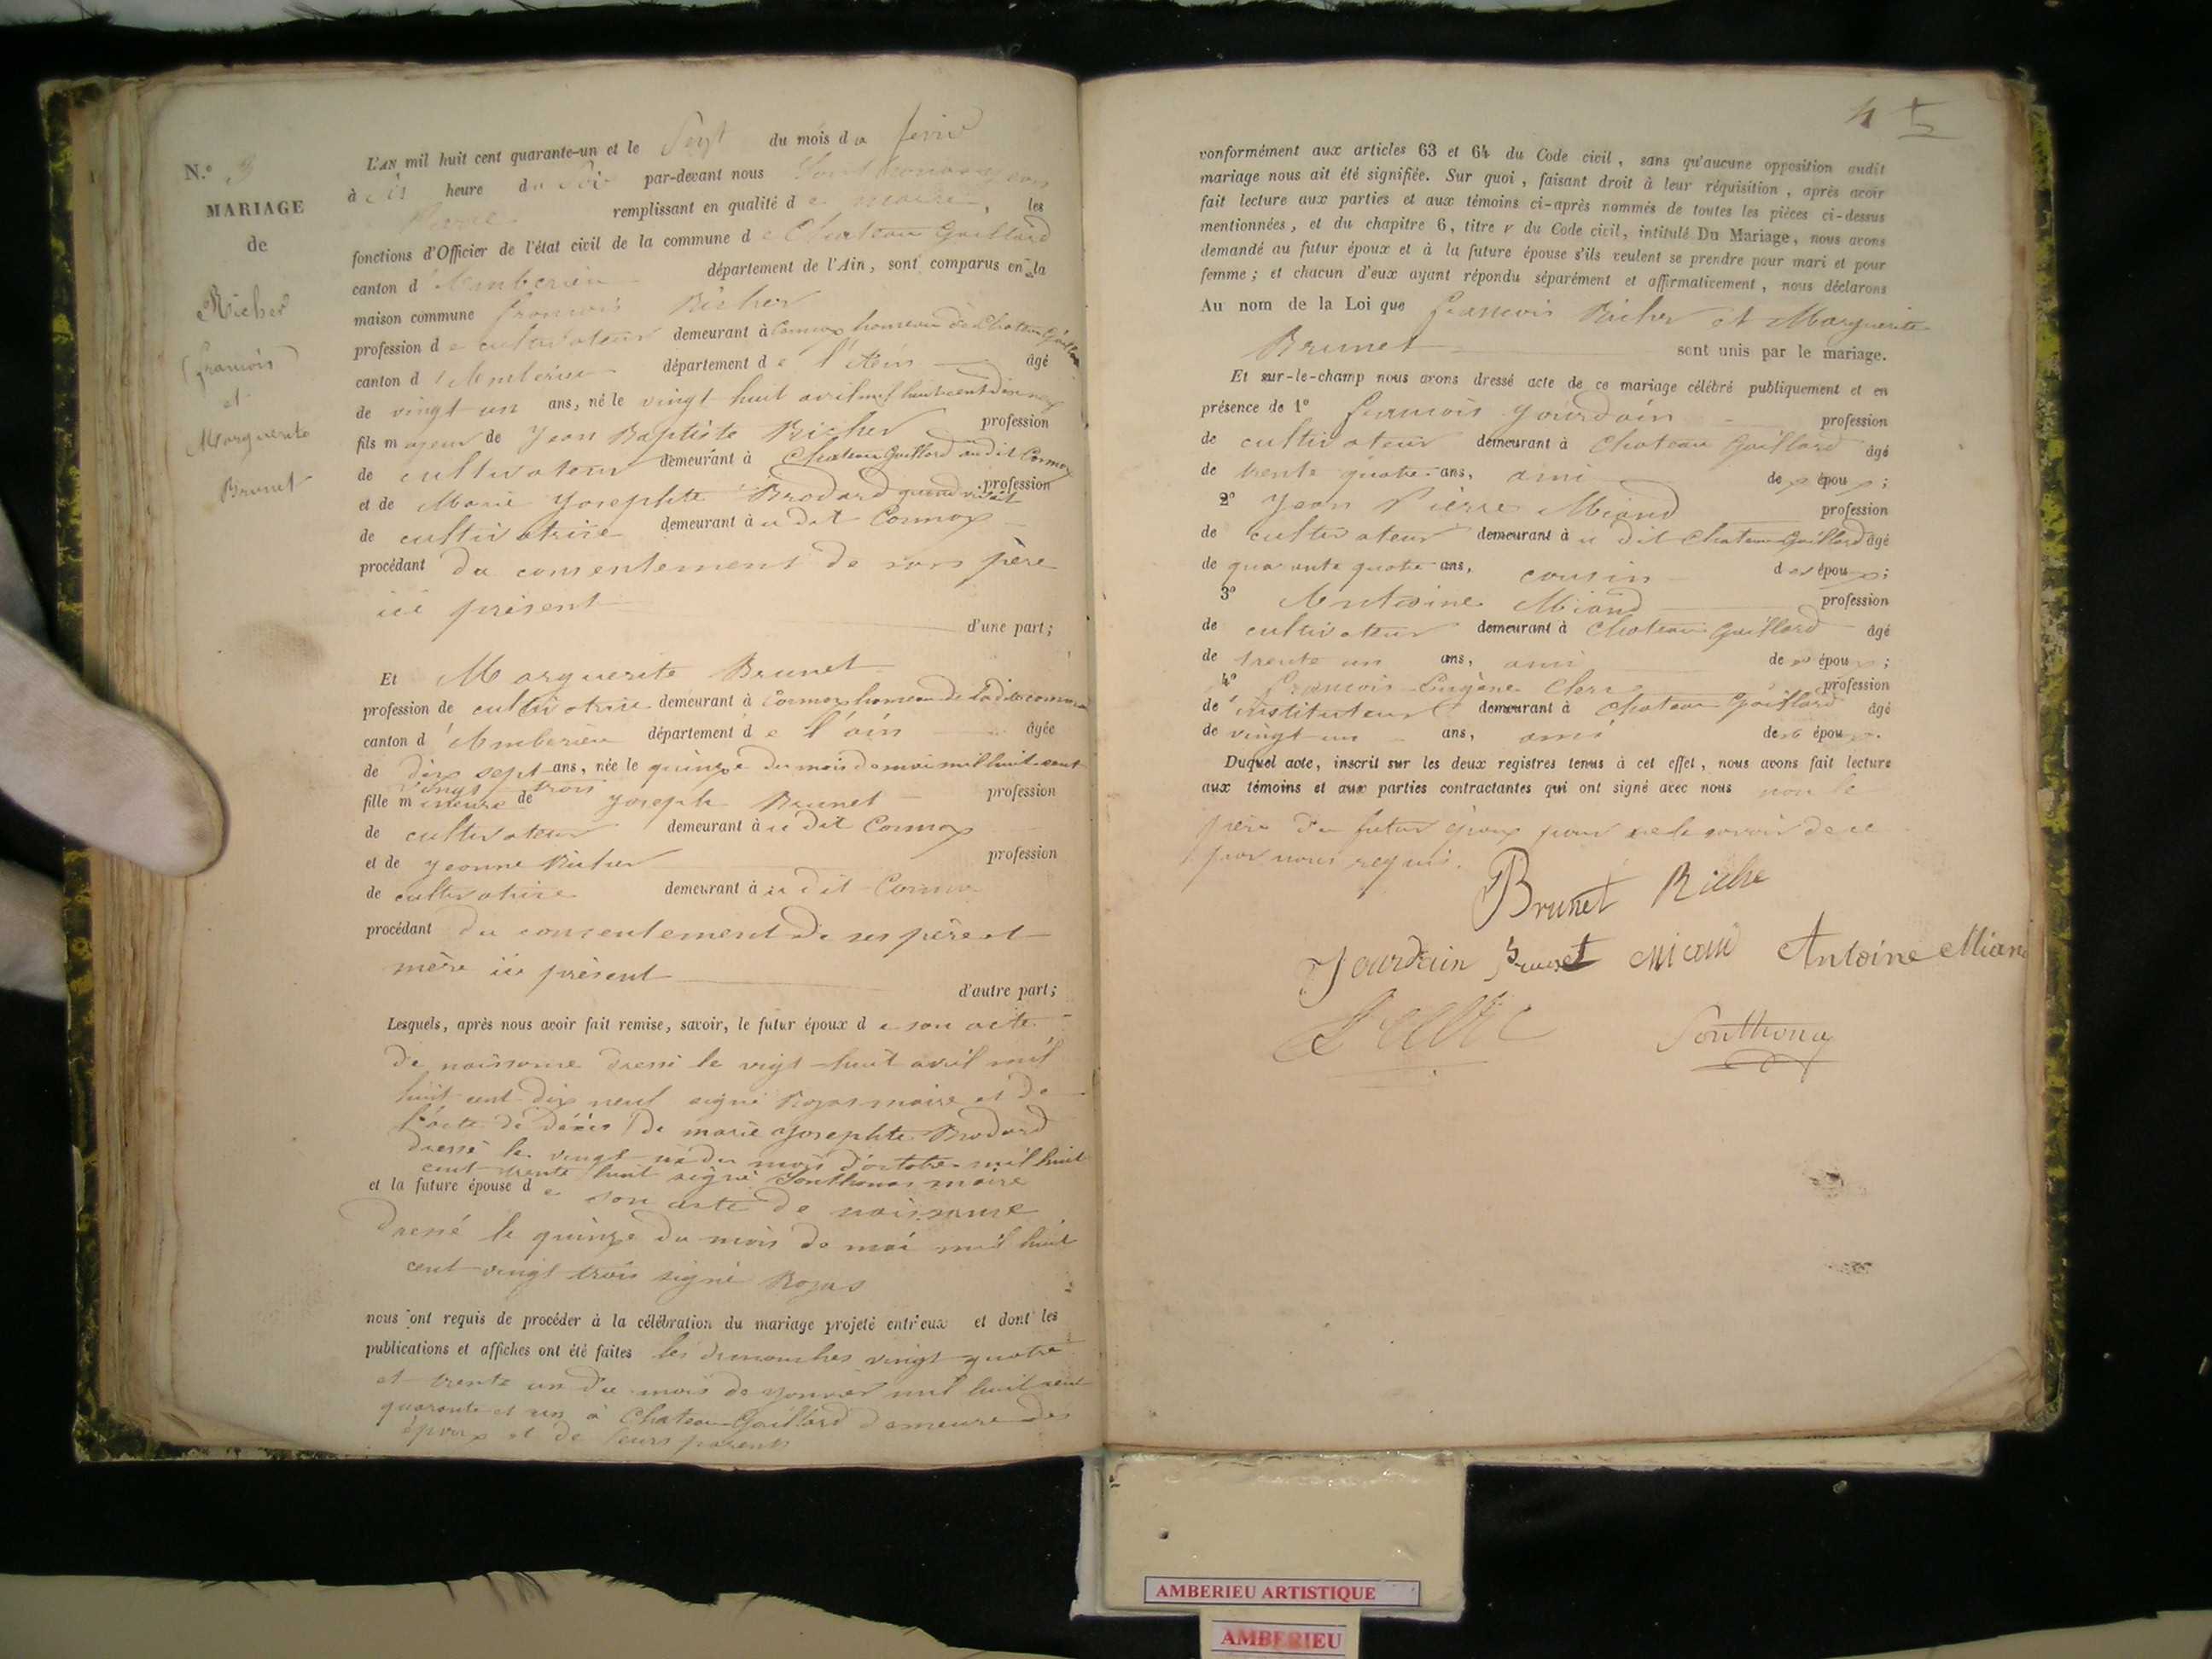 N.° 3
MARIAGE
de
Richer
françois
et
Marguerite
Brunet
L'AN mil huit cent quarante-un et le Sept du mois de
à heure du Soir par-devant nous
Pierre remplissant en qualité de maire, les
fonctions d'Officier de l'état civil de la commune de Chateau Gaillard
canton d'Amberieu département de l'Ain, sont comparus en la
maison commune francois Richer
profession de cultivateur demeurant à Cormoz hameau de Chateau Gaillard
canton d'Amberieu département de l'Ain âgé
de vingt un ans, né le vingt huit avril mil huit cent dix neuf
fils majeur de Jean Baptiste Richer profession
de cultivateur demeurant à Chateau Gaillard audit Cormoz
et de Marie Josephte Brodard quand vivait profession
de cultivatrice demeurant à u dit Cormoz
procédant du consentement de son père
ici présent
d'une part;
Et Marguerite Brunet
profession de cultivatrice demeurant à Cormoz hameau de ladite commune
canton d'Amberieu département de l'ain âgée
de dix sept ans, née le quinze du mois de mai mil huit cent
vingt trois
fille mineure de Joseph Brunet profession
de cultivateur demeurant à u dit Cormoz
et de Jeanne Richer profession
de cultivatrice demeurant à u dit Cormoz
procédant du consentement de ses père et
mère ici présent
d'autre part;
Lesquels, après nous avoir fait remise, savoir, le futur époux de son acte
de naissance dressé le vigt huit avril mil
huit cent dix neuf signé Rojas maire et de
l'acte de décès de marie Josephte Brodard
dressé le vingt du mois d'octobre mil huit
cent trente huit signé Sonthonas maire
et la future épouse de son acte de naissance
dressé le quinze du mois de mai mil huit
cent vingt trois signé Rojas
nous ont requis de procéder à la célébration du mariage projeté entr'eux et dont les
publications et affiches ont été faites les dimanches vingt quatre
et trente un du mois de janvier mil huit cent
quarante et un à Chateau Gaillard demeure des
époux et de leurs parents
4 5
conformément aux articles 63 et 64 du Code civil, sans qu'aucune opposition audit
mariage nous ait été signifiée. Sur quoi, faisant droit à leur réquisition, après avoir
fait lecture aux parties et aux témoins ci-après nommés de toutes les pièces ci-dessus
mentionnées, et du chapitre 6, titre v du Code civil, intitulé Du Mariage, nous avons
demandé au futur époux et à la future épouse s'ils veulent se prendre pour mari et pour
femme; et chacun d'eux ayant répondu séparément et affirmativement, nous déclarons
Au nom de la Loi que francois Richer et Marguerite
Brunet sont unis par le mariage.
Et sur-le-champ nous avons dressé acte de ce mariage célébré publiquement et en
présence de 1° francois Jourdain profession
de cultivateur demeurant à Chateau Gaillard âgé
de trente quatre ans, ami des époux;
2° Jean Pierre Miand profession
de cultivateur demeurant à u dit Chateau Gaillard âgé
de quarante quatre ans, cousin des époux;
3° Antoine Miand profession
de cultivateur demeurant à Chateau Gaillard âgé
de trente un ans, ami des époux;
4° francois Eugène Clerc profession
de instituteur demeurant à Chateau Gaillard âgé
de vingt un ans, ami des époux.
Duquel acte, inscrit sur les deux registres tenus à cet effet, nous avons fait lecture
aux témoins et aux parties contractantes qui ont signé avec nous non le
père du futur époux pour ne le savoir de ce
par nous requis.
Brunet Riche
Jourdain Brunet Miand Antoine Miand
Sonthonas
AMBERIEU ARTISTIQUE
AMBERIEU